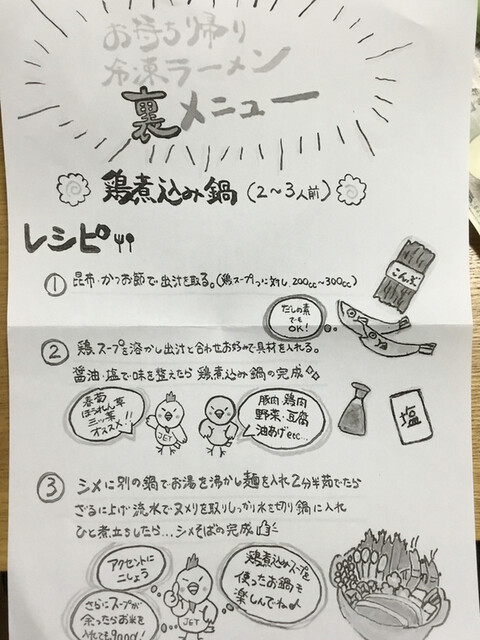 お持ち帰り
冷凍ラーメン
裏メニュー
鶏煮込み鍋(2～3人前)
レシピ
① 昆布・かつお節で出汁を取る。(鶏スープ1つに対し、200cc～300cc)
こんぶ
だしの素
でも
OK!
② 鶏スープを溶かし出汁と合わせお好みで具材を入れる。
醤油・塩で味を整えたら鶏煮込み鍋の完成
春菊
ほうれん草
三ッ葉
オススメ!!
JET
豚肉・鶏肉
野菜・豆腐
油あげetc...
塩
③ シメに別の鍋でお湯を沸かし麺を入れ2分半茹でたら
ざるに上げ流水でヌメリを取りしっかり水を切り鍋に入れ
ひと煮立ちしたら...シメそばの完成
アクセントに
こしょう
さらにスープが
余ったらお米を
入れてもgood!
JET
鶏煮込みスープを
使ったお鍋も
楽しんでね♪